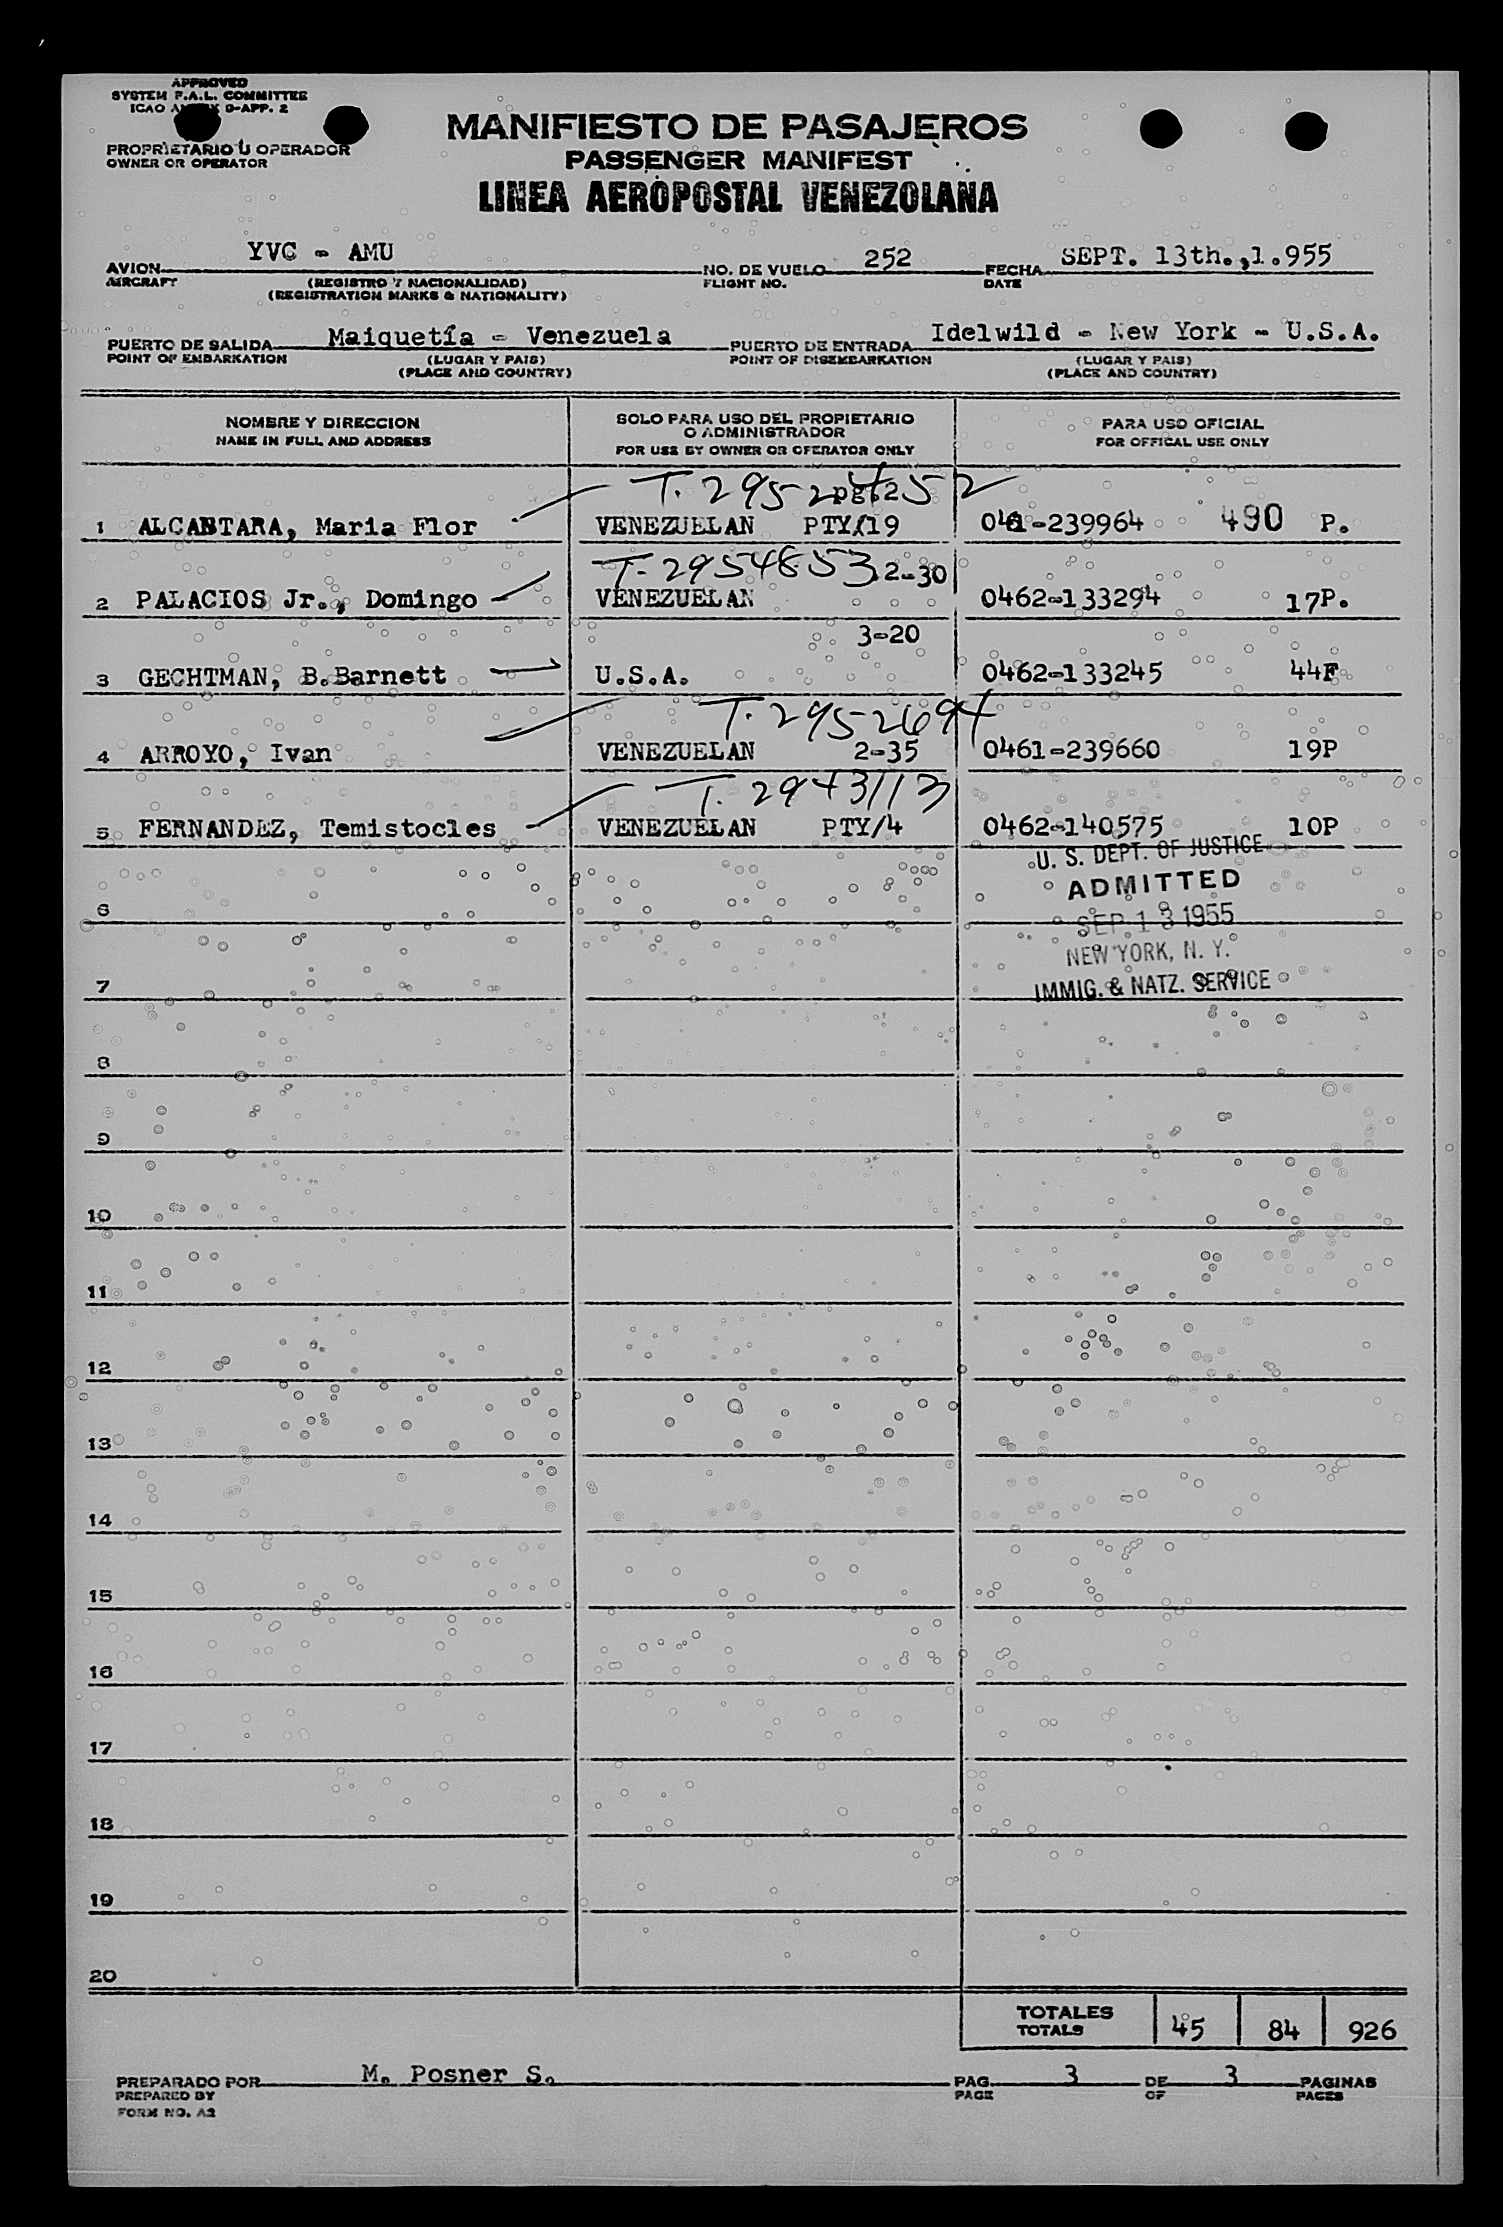 APPROVED
SYSTEM F.A.L. COMMITTEE
ICAO 9-APP. 2
PROPRIETARIO U OPERADOR
OWNER OR OPERATOR
MANIFIESTO DE PASAJEROS
PASSENGER MANIFEST
LINEA AEROPOSTAL VENEZOLANA
AVION YVC - AMU NO. DE VUELO 252 FECHA SEPT. 13th.,1.955
AIRCRAFT (REGISTRO Y NACIONALIDAD) FLIGHT NO. DATE
(REGISTRATION MARKS & NATIONALITY)
PUERTO DE SALIDA Maiquetía - Venezuela PUERTO DE ENTRADA Idelwild - New York - U.S.A.
POINT OF EMBARKATION (LUGAR Y PAIS) POINT OF DISEMBARKATION (LUGAR Y PAIS)
(PLACE AND COUNTRY) (PLACE AND COUNTRY)
NOMBRE Y DIRECCION SOLO PARA USO DEL PROPIETARIO PARA USO OFICIAL
NAME IN FULL AND ADDRESS O ADMINISTRADOR FOR OFFICAL USE ONLY
FOR USE BY OWNER OR OPERATOR ONLY
1 ALCANTARA, Maria Flor VENEZUELAN PTY/19 -239964 490 P.
T. 2954853 2-30
2 PALACIOS Jr., Domingo VENEZUELAN 0462-133294 17P.
3-20
3 GECHTMAN, B.Barnett U.S.A. 0462-133245 44F
T. 2952694
4 ARROYO, Ivan VENEZUELAN 2-35 0461-239660 19P
T. 2943113
5 FERNANDEZ, Temistocles VENEZUELAN PTY/4 0462-140575 10P
U. S. DEPT. OF JUSTICE
ADMITTED
6 SEP 13 1955
NEW YORK, N. Y.
7 IMMIG. & NATZ. SERVICE
8
9
10
11
12
13
14
15
16
17
18
19
20
TOTALES 45 84 926
TOTALS
PREPARADO POR M. Posner S. PAG. 3 DE 3 PAGINAS
PREPARED BY PAGE OF PAGES
FORM NO. A2